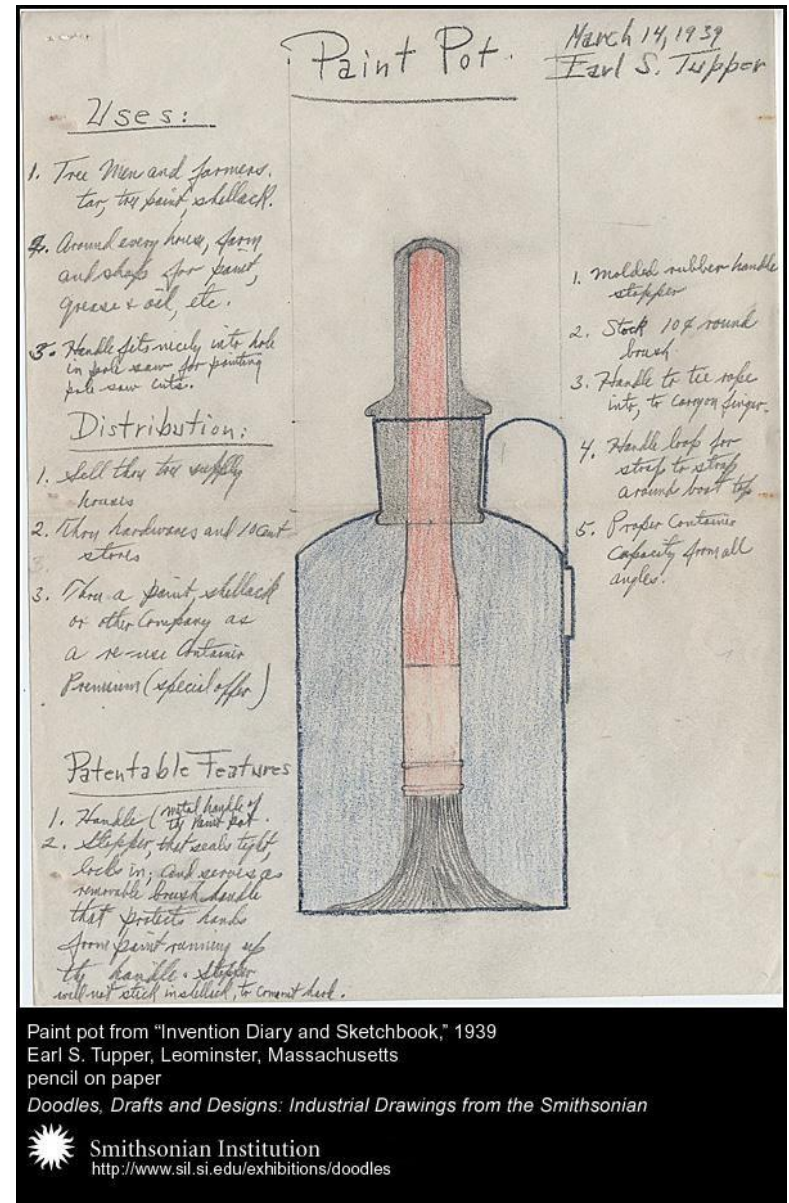 Paint Pot.
March 14, 1939
Earl S. Tupper
Uses:
1. Tree Men and farmers.
tar, tree paint, shellack.
2. Around every house, farm
and shop for paint,
grease & oil, etc.
3. Handle fits nicely into hole
in pole saw for painting
pole saw cuts.
Distribution:
1. Sell thru tree supply
houses
2. Thru hardwares and 10 cent
stores
3. Thru a paint, shellack
or other Company as
a re-use Container
Premium (special offer)
Patentable Features
1. Handle (metal handle of
the paint pot.
2. Stopper, that seals tight,
locks in; and serves as
removable brush handle
that protects hands
from paint running up
the handle. Stopper
will not stick in shellack, to
1. Molded rubber handle
stopper
2. Stock 10¢ round
brush
3. Handle to tie rope
into, to carry on finger.
4. Handle loop for
strap to strap
around boot top
5. Proper Container
Capacity from all
angles.
Paint pot from “Invention Diary and Sketchbook,” 1939
Earl S. Tupper, Leominster, Massachusetts
pencil on paper
Doodles, Drafts and Designs: Industrial Drawings from the Smithsonian
Smithsonian Institution
http://www.sil.si.edu/exhibitions/doodles